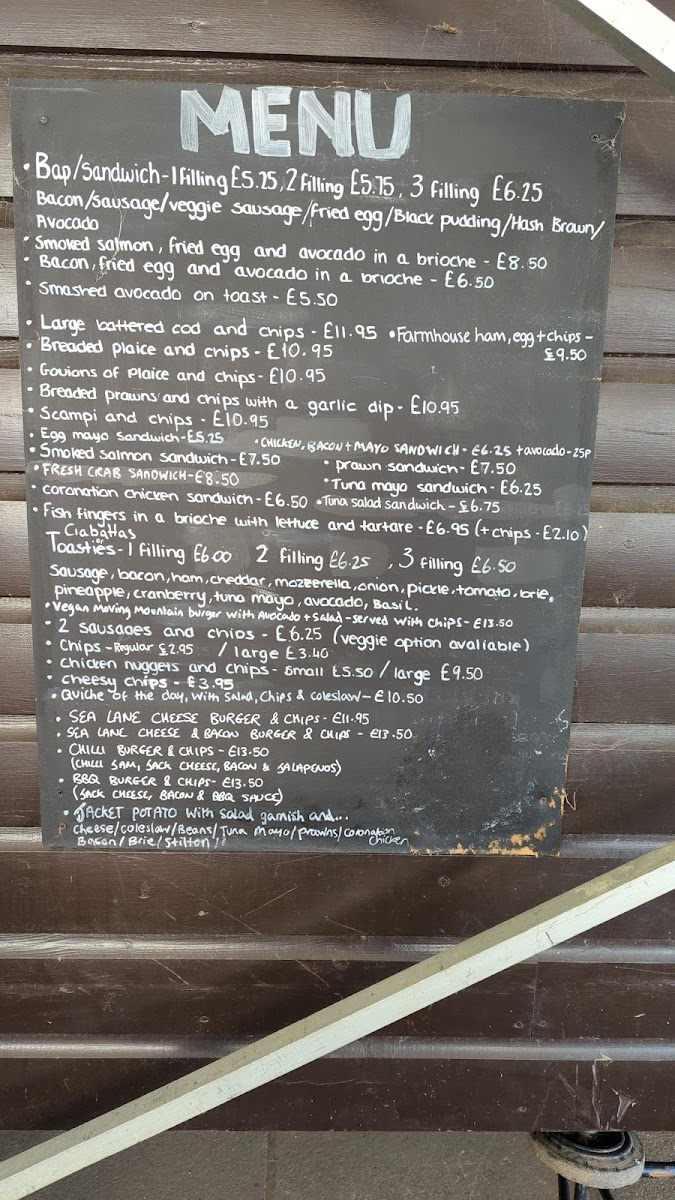 MENU
• Bap/Sandwich-1 filling £5.25, 2 filling £5.75, 3 filling £6.25
Bacon/sausage/veggie sausage/fried egg/Black pudding/Hash Brown/
Avocado
• Smoked salmon, fried egg and avocado in a brioche - £8.50
• Bacon, fried egg and avocado in a brioche - £6.50
• Smashed avocado on toast - £5.50
• Large battered cod and chips - £11.95 • Farmhouse ham, egg + chips -
£9.50
• Breaded plaice and chips - £10.95
• Goujons of Plaice and chips - £10.95
• Breaded prawns and chips with a garlic dip - £10.95
• Scampi and chips - £10.95
• Egg mayo sandwich - £5.25 • CHICKEN, BACON + MAYO SANDWICH - £6.25 + avocado - 25p
• Smoked salmon sandwich - £7.50 • prawn sandwich - £7.50
• FRESH CRAB SANDWICH - £8.50 • Tuna mayo sandwich - £6.25
• coronation chicken sandwich - £6.50 • Tuna salad sandwich - £6.75
• Fish fingers in a brioche with lettuce and tartare - £6.95 (+ chips - £2.10)
Ciabattas
or
Toasties - 1 filling £6.00 2 filling £6.25, 3 filling £6.50
Sausage, bacon, ham, cheddar, mozzerella, onion, pickle, tomato, brie,
pineapple, cranberry, tuna mayo, avocado, Basil.
• Vegan Moving Mountain burger with Avocado + Salad - served with chips - £13.50
• 2 sausages and chips - £6.25 (veggie option avaliable)
Chips - Regular £2.95 / large £3.40
• Chicken nuggets and chips - Small £5.50 / large £9.50
• cheesy chips - £3.95
• Quiche of the day, with Salad, Chips & coleslaw - £10.50
• SEA LANE CHEESE BURGER & CHIPS - £11.95
• SEA LANE CHEESE & BACON BURGER & CHIPS - £13.50
• CHILLI BURGER & CHIPS - £13.50
(CHILLI JAM, JACK CHEESE, BACON & JALAPENOS)
• BBQ BURGER & CHIPS - £13.50
(JACK CHEESE, BACON & BBQ SAUCE)
• JACKET POTATO with Salad garnish and...
cheese/coleslaw/Beans/Tuna Mayo/prawns/coronation
chicken
Bacon/Brie/Stilton